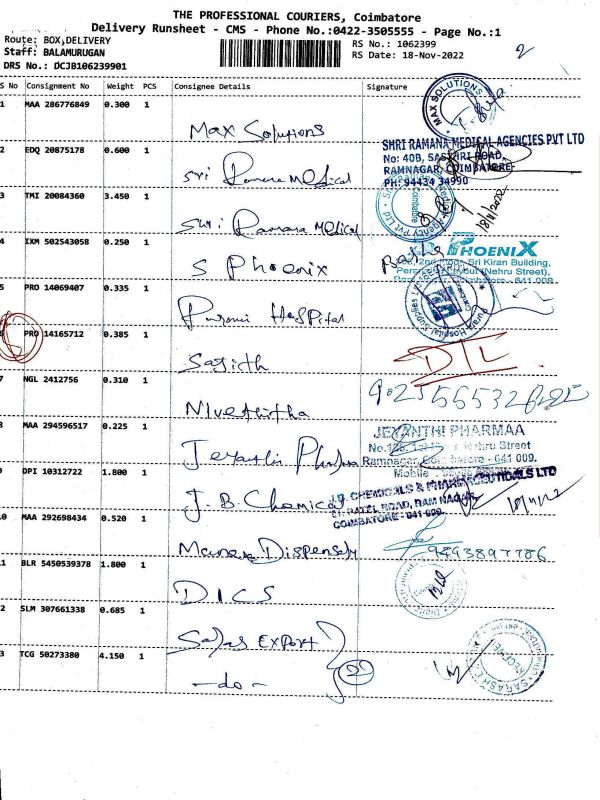 THE PROFESSIONAL COURIERS, Coimbatore
Delivery Runsheet - CMS - Phone No.:0422-3505555 - Page No.:1
Route: BOX,DELIVERY
RS No.: 1062399
Staff: BALAMURUGAN
RS Date: 18-Nov-2022
2
DRS No.: DCJB106239901
S No Consignment No Weight PCS Consignee Details Signature
1 MAA 286776849 0.300 1
MAX SOLUTIONS
Max Solutions
2 EDQ 20875178 0.600 1
SHRI RAMANA MEDICAL AGENCIES PVT LTD
No: 40B, SASTHRI ROAD,
RAMNAGAR, COIMBATORE-
PH: 94434 34990
Sri Ramana Medical
3 TMI 20084360 3.450 1
18/11/2022
Shri Ramana Medical
4 IXM 502543058 0.250 1
PHOENIX
2nd Floor, Sri Kiran Building,
(Nehru Street),
641 009
S Phoenix
5 PRO 14069407 0.335 1
Hospital
6 PRO 14165712 0.385 1
Sajith
DTL
7 NGL 2412756 0.310 1
Nivethitha
8 MAA 294596517 0.225 1
JEYANTHI PHARMAA
Nehru Street
Ramnagar, Coimbatore - 641 009.
Mobile
Jeyanthi Pharma
9 DPI 10312722 1.800 1
J.B. CHEMICALS & PHARMACEUTICALS LTD
PATEL ROAD, RAM NAGAR,
COIMBATORE - 641 009.
18/11/22
J.B. Chemical
10 MAA 292698434 0.520 1
9893897786
11 BLR 5450539378 1.800 1
DICS
12 SLM 307661338 0.685 1
Export
13 TCG 50273380 4.150 1
-do-